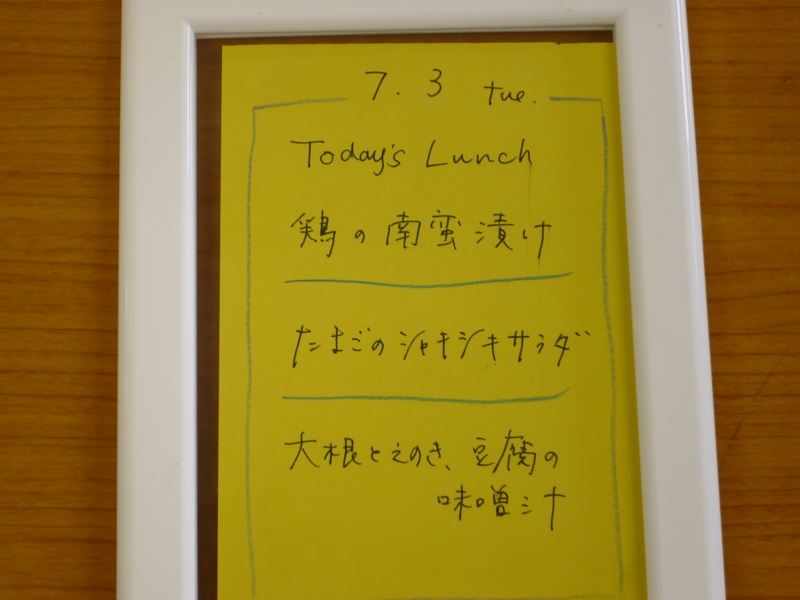 7.3 tue.
Today's Lunch
鶏の南蛮漬け
たまごのシャキシキサラダ
大根とえのき、豆腐の
味噌汁